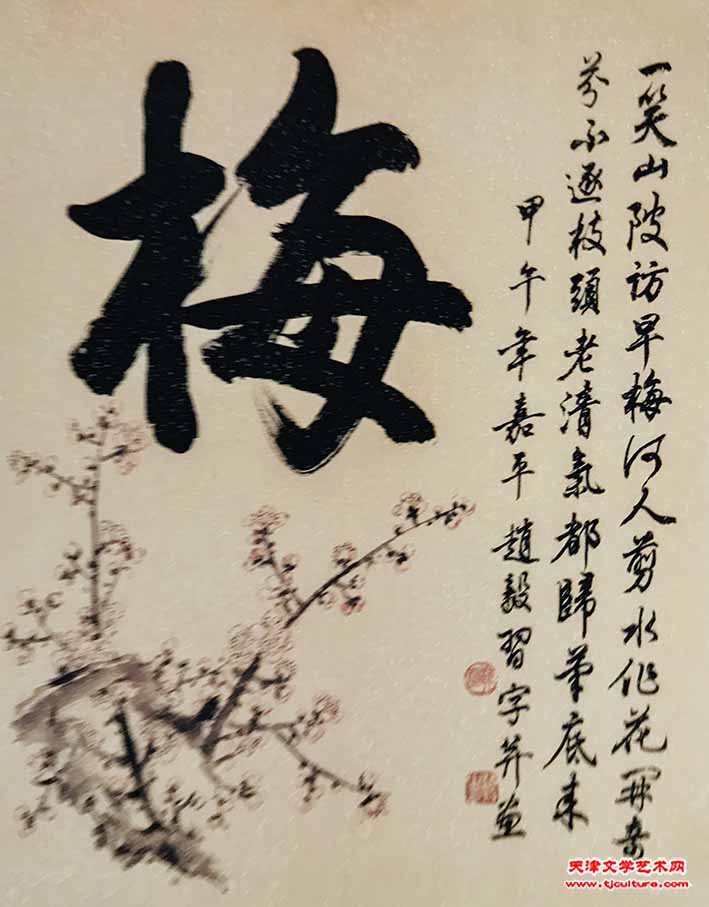 梅
一笑山陂访早梅何人剪水作花開奇
芬不逐枝頭老清氣都歸筆底来
甲午年嘉平趙毅習字并画
天津文学艺术网
www.tjculture.com